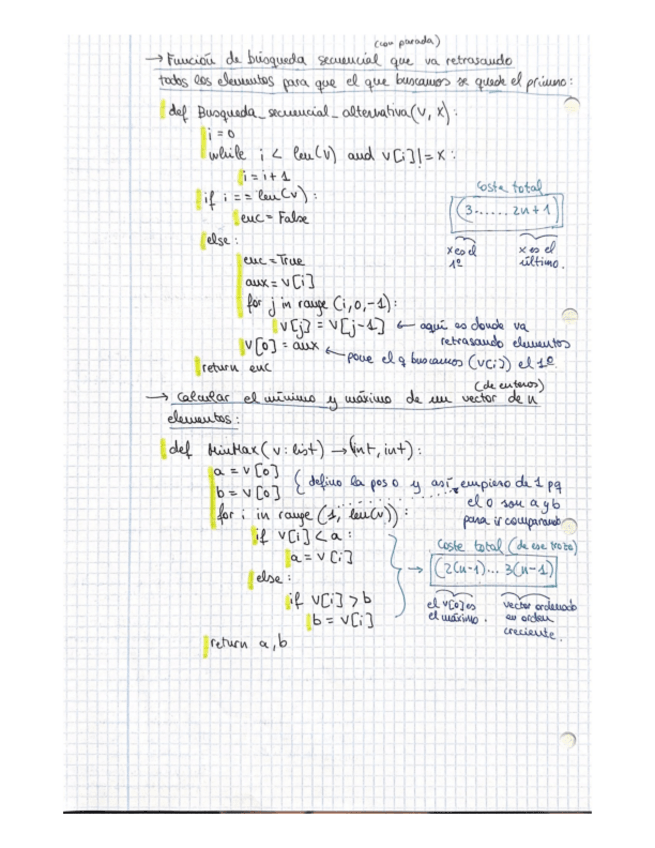 (con parada)
→ Función de búsqueda secuencial que va retrasando
todos los elementos para que el que buscamos se quede el primero:
def Busqueda_secuencial_alternativa(v, x):
i = 0
while i < len(v) and v[i] != x :
i = i + 1
if i == len(v) :
enc = False
else :
enc = True
aux = v[i]
for j in range (i,0,-1) :
v[j] = v[j-1] ← aquí es donde va
retrasando elementos
v[0] = aux ← pone el q buscamos (v[i]) el 1º
return enc
Coste total
(3...... 2n+1)
x es el
1º
x es el
último.
→ Calcular el mínimo y máximo de un vector de n
(de enteros)
elementos :
def MinMax (v: list) → (int, int) :
a = v[0]
b = v[0]
{ defino la pos 0 y así empiezo de 1 pq
el 0 son a y b
para ir comparando
for i in range (1, len(v)) :
if v[i] < a :
a = v[i]
else :
if v[i] > b
b = v[i]
return a, b
Coste total (de ese trozo)
→ (2(n-1)... 3(n-1))
el v[0] es
el máximo.
vector ordenado
en orden
creciente.